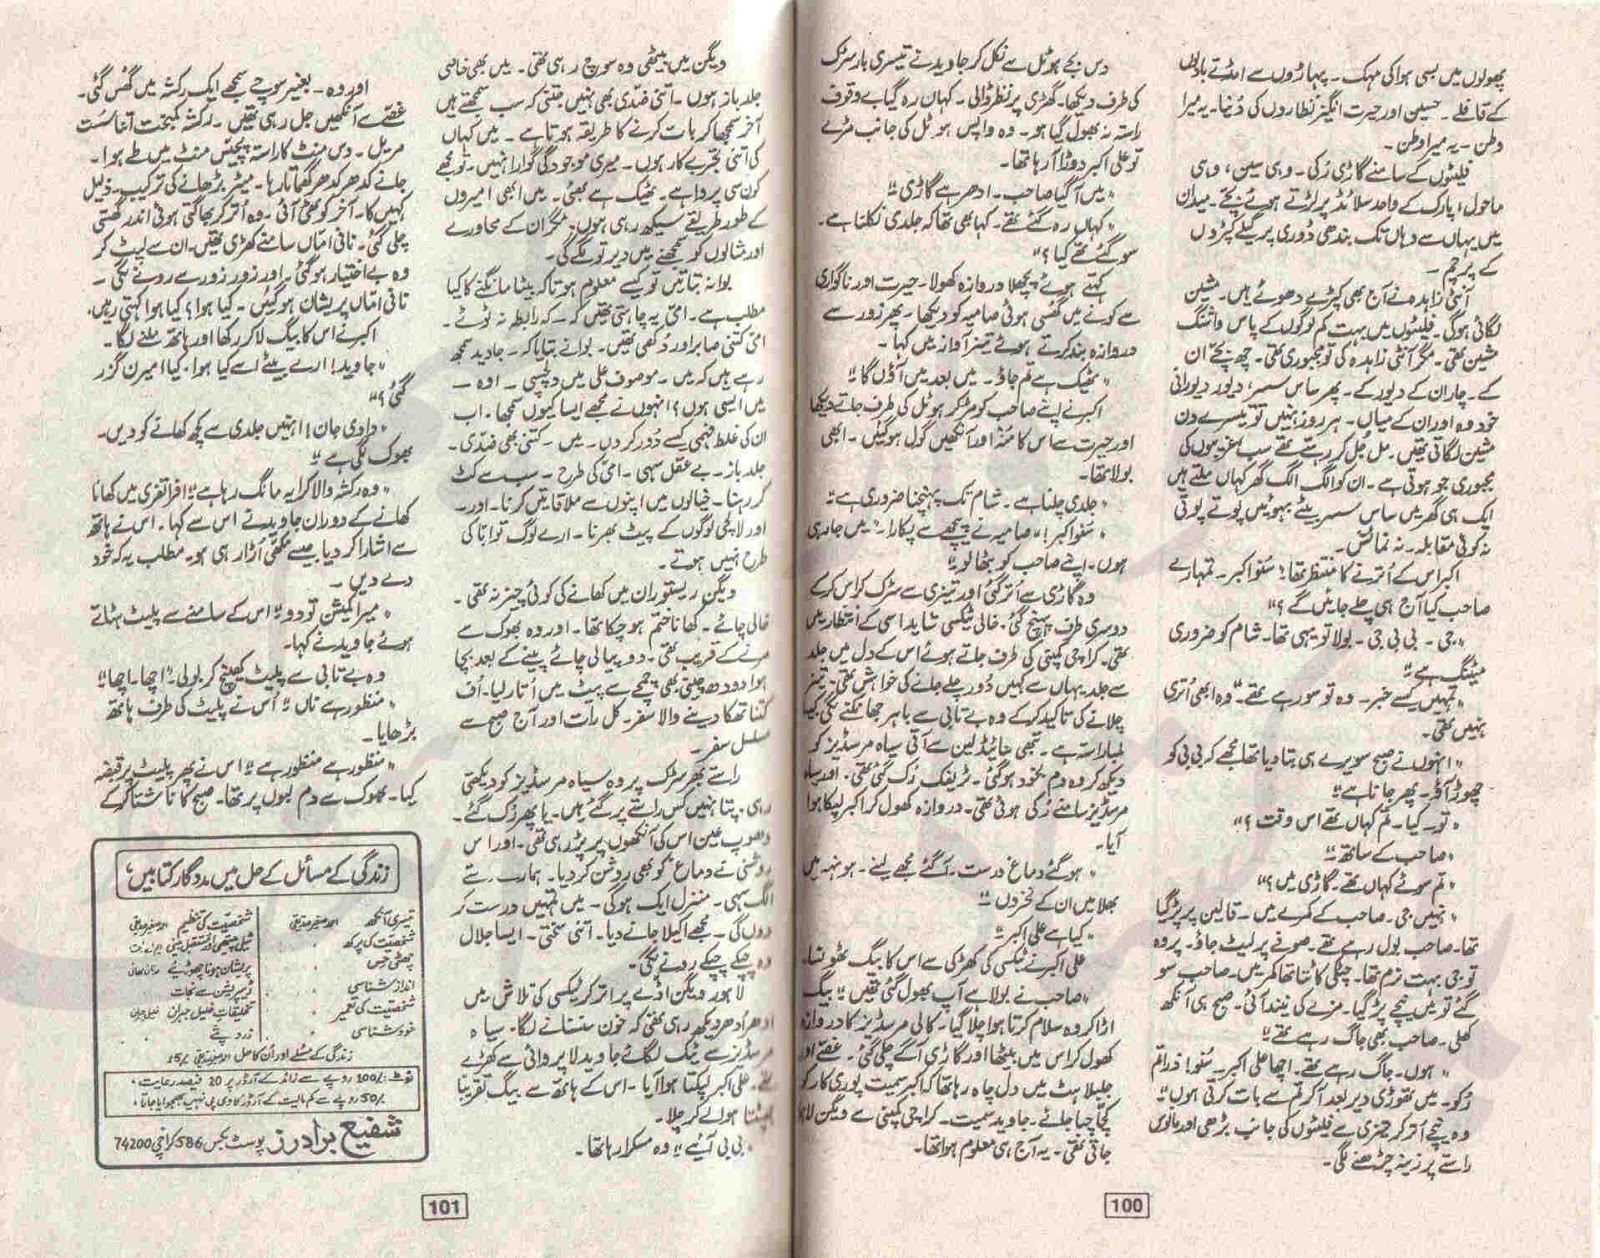 پھولوں میں بسی ہوا کی مہک۔ پہاڑوں سے امڈتے بادلوں
کے قافلے۔ حسین اور حیرت انگیز نظاروں کی دُنیا۔ یہ میرا
وطن۔ یہ میرا وطن۔
فلیٹوں کے سامنے گاڑی رُکی۔ وہی سین، وہی
ماحول، پارک کے واحد سلائڈ پر لڑتے ہوئے بچے۔ میدان
میں یہاں سے وہاں تک بندھی ڈوری پر گیلے کپڑوں
کے پرچم۔
آنٹی زاہدہ نے آج بھی کپڑے دھوئے ہیں۔ مشین
لگائی ہوگی۔ فلیٹوں میں بہت کم لوگوں کے پاس واشنگ
مشین تھی۔ مگر آنٹی زاہدہ کی تو مجبوری تھی۔ چھ بچے ان
کے۔ چار ان کے دیور کے۔ پھر ساس سسر، دیور دیورانی
خود وہ اور ان کے میاں۔ ہر روز نہیں تو تیسرے دن
مشین لگاتی تھیں۔ مل جُل کر رہتے تھے سب غریبوں کی
مجبوری جو ہوتی ہے۔ ان کو الگ الگ گھر کہاں ملتے ہیں
ایک ہی گھر میں ساس سسر بیٹے بہوئیں پوتے پوتی
نہ کوئی مقابلہ۔ نہ نمائش۔
اکبر اس کے اُترنے کا منتظر تھا۔ "سُنو اکبر۔ تمہارے
صاحب کیا آج ہی چلے جائیں گے؟"
"جی۔ بی بی جی۔ بولا تو یہی تھا۔ شام کو ضروری
میٹنگ ہے"
"تمہیں کیسے خبر۔ وہ تو سو رہے تھے" وہ ابھی اُتری
نہیں تھی۔
"انہوں نے صبح سویرے ہی بتا دیا تھا مجھے کہ بی بی کو
چھوڑ آؤ۔ پھر جانا ہے"
"تو۔ کیا۔ تم کہاں تھے اس وقت؟"
"صاحب کے ساتھ"
"تم سوئے کہاں تھے۔ گاڑی میں؟"
"نہیں جی۔ صاحب کے کمرے میں۔ قالین پر پڑ گیا
تھا۔ صاحب بول رہے تھے۔ صوفے پر لیٹ جاؤ۔ پر وہ
تو جی بہت نرم تھا۔ میں۔ صاحب سو
گئے تو میں نیچے پڑ گیا۔ مزے کی نیند آئی۔ صبح ہی آنکھ
کھلی۔ صاحب بھی جاگ رہے تھے"
"ہوں۔ جاگ رہے تھے۔ اچھا علی اکبر۔ سُنو! ذرا تم
رُکو۔ میں تھوڑی دیر بعد آکر تم سے بات کرتی ہوں"
وہ نیچے اُتر کر تیزی سے فلیٹوں کی جانب بڑھی اور مانوس
راستے پر زینہ چڑھنے لگی۔
دس بجے ہوٹل سے نکل کر جاوید نے تیسری بار سڑک
کی طرف دیکھا۔ گھڑی پر نظر ڈالی۔ کہاں رہ گیا بے وقوف
راستہ نہ بھول گیا ہو۔ وہ واپس ہوٹل کی جانب مڑے
تو علی اکبر دوڑا آرہا تھا۔
"میں آگیا صاحب۔ ادھر ہے گاڑی"
"کہاں رہ گئے تھے۔ کہا بھی تھا کہ جلدی نکلنا ہے۔
سو گئے تھے کیا؟"
کہتے ہوئے پچھلا دروازہ کھولا۔ حیرت اور ناگواری
سے کونے میں گھسی ہوئی صامیہ کو دیکھا۔ پھر زور سے
دروازہ بند کرتے ہوئے تیز آواز میں کہا۔
"ٹھیک ہے تم جاؤ۔ میں بعد میں آؤں گا"
اکبر نے اپنے صاحب کو مڑ کر ہوٹل کی طرف جاتے دیکھا
اور حیرت سے اس کا منہ اور آنکھیں گول ہوگئیں۔ ابھی
بولا تھا۔
"جلدی چلنا ہے۔ شام تک پہنچنا ضروری ہے"
"سُنو اکبر!" صامیہ نے پیچھے سے پکارا۔ "میں جا رہی
ہوں۔ اپنے صاحب کو بٹھا لو"
وہ گاڑی سے اُتر گئی اور تیزی سے سڑک کراس کر کے
دوسری طرف پہنچ گئی۔ خالی ٹیکسی شاید اسی کے انتظار میں
تھی۔ کراچی کمپنی کی طرف جاتے ہوئے اس کے دل میں جلد
سے جلد یہاں سے کہیں دُور چلے جانے کی خواہش تھی۔ تیز
چلانے کی تاکید کر کے وہ بے تابی سے باہر جھانکنے لگی
لمبا راستہ ہے۔ تبھی سے آتی سیاہ مرسڈیز کو
دیکھ کر وہ دم بخود ہوگئی۔ ٹریفک رُک گئی تھی۔ اور سیاہ
مرسڈیز سامنے رُکی ہوئی تھی۔ دروازہ کھول کر اکبر لپکا ہوا
آیا۔
"ہوگئے دماغ درست۔ آگئے مجھے لینے۔ ہونہہ میں
بھلا میں ان کے نخروں"
"کیا ہے علی اکبر"
علی اکبر نے ٹیکسی کی کھڑکی سے اس کا بیگ ٹھونسا۔
"صاحب نے بولا ہے آپ بھول گئی تھیں" بیگ
اڑا کر وہ سلام کرتا ہوا چلا گیا۔ کالی مرسڈیز کا دروازہ
کھول کر اس میں بیٹھا اور گاڑی آگے چلی گئی۔ غصے اور
جلبلاہٹ میں دل چاہ رہا تھا کہ اکبر سمیت پوری کار کو
کچا چبا جائے۔ جاوید سمیت۔ کراچی کمپنی سے ویگن لاہور
جاتی تھی۔ یہ آج ہی معلوم ہوا تھا۔
100
ویگن میں بیٹھی وہ سوچ رہی تھی۔ میں بھی خاصی
جلد باز ہوں۔ اتنی ضدی بھی نہیں جتنی کہ سب سمجھتے ہیں
آخر سمجھا کر بات کرنے کا طریقہ ہوتا ہے۔ میں کہاں
کی اتنی تجربے کار ہوں۔ میری موجودگی گوارا نہیں۔ تو مجھے
کون سی پروا ہے۔ ٹھیک ہے بھئی۔ میں ابھی امیروں
کے طور طریقے سیکھ رہی ہوں۔ مگر ان کے محاورے
اور مثالوں کو سمجھنے میں دیر تو لگے گی۔
بوا نہ بتاتیں تو کیسے معلوم ہوتا کہ بیٹا مانگنے کا کیا
مطلب ہے۔ امی یہ چاہتی تھیں کہ۔ کہ رابطہ نہ ٹوٹے۔
امی کتنی صابر اور دُکھی تھیں۔ بوا نے بتایا کہ۔ جاوید سمجھ
رہے ہیں کہ میں۔ موصوف علی میں دلچسپی۔ اوہ۔
میں ایسی ہوں؟ انہوں نے مجھے ایسا کیوں سمجھا۔ اب
ان کی غلط فہمی کیسے دُور کردوں۔ میں۔ کتنی بھی ضدی۔
جلد باز۔ بے عقل سہی۔ امی کی طرح۔ سب سے کٹ
کر رہنا۔ خیالوں میں اپنوں سے ملاقاتیں کرنا۔ اور۔
اور لالچی لوگوں کے پیٹ بھرنا۔ ارے لوگ تو ابا کی
طرح نہیں ہوتے۔
ویگن ریستوران میں کھانے کی کوئی چیز نہ تھی۔
خالی چائے۔ کھانا ختم ہوچکا تھا۔ اور وہ بھوک سے
مرنے کے قریب تھی۔ دو پیالی چائے پینے کے بعد بچا
ہوا دودھ چینی بھی چمچے سے پیٹ میں اُتار لیا۔ اُف
کتنا تھکا دینے والا سفر۔ کل رات اور آج صبح سے
مسلسل سفر۔
راستے بھر سڑک پر وہ سیاہ مرسڈیز کو دیکھتی
رہی۔ پتا نہیں کس راستے پر گئے ہیں۔ یا پھر رُک گئے۔
دھوپ عین اس کی آنکھوں پر پڑ رہی تھی۔ اور اس
روشنی نے دماغ کو بھی روشن کردیا۔ ہمارے رستے
الگ سہی۔ منزل ایک ہوگی۔ میں تمہیں درست کر
دوں گی۔ مجھے اکیلا جانے دیا۔ اتنی سختی۔ ایسا جلال
وہ چپکے چپکے رونے لگی۔
لاہور ویگن اڈے پر اتر کر ٹیکسی کی تلاش میں
ادھر اُدھر دیکھ رہی تھی کہ خون سنسنانے لگا۔ سیاہ
مرسڈیز سے ٹیک لگائے جاوید لاپروائی سے کھڑے
تھے۔ علی اکبر لپکتا ہوا آیا۔ اس کے ہاتھ سے بیگ تقریباً
جھپٹتا ہولے کر چلا۔
"بی بی آئیے" وہ مسکرا رہا تھا۔
اور وہ۔ بغیر سوچے سمجھے ایک رکشہ میں گھس گئی۔
غصے سے آنکھیں جل رہی تھیں۔ رکشہ کمبخت اتنا سُست
مریل۔ دس منٹ کا راستہ پچیس منٹ میں طے ہوا۔
جانے کدھر کدھر گھماتا رہا۔ میٹر بڑھانے کی ترکیب۔ ذلیل
کہیں کا۔ آخر کوٹھی آئی۔ وہ اُتر کر بھاگتی ہوئی اندر گھستی
چلی گئی۔ نانی امّاں سامنے کھڑی تھیں۔ ان سے لپٹ کر
وہ بے اختیار ہوگئی۔ اور زور زور سے رونے لگی۔
نانی امّاں پریشان ہوگئیں۔ کیا ہوا؟ کیا ہوا کہتی رہیں۔
اکبر نے اس کا بیگ لاکر رکھا اور ہاتھ ملنے لگا۔
"جاوید! ارے بیٹے اسے کیا ہوا۔ کیا امیرن گزر
گئی؟"
"دادی جان! انہیں جلدی سے کچھ کھانے کو دیں۔
بھوک لگی ہے"
"وہ رکشہ والا کرایہ مانگ رہا ہے" افراتفری میں کھانا
کھانے کے دوران جاوید نے اس سے کہا۔ اس نے ہاتھ
سے اشارا کردیا جیسے مکھی اُڑا رہی ہو۔ مطلب یہ کہ خود
دے دیں۔
"میرا کمیشن تو دو" اس کے سامنے سے پلیٹ ہٹاتے
ہوئے جاوید نے کہا۔
وہ بے تابی سے پلیٹ کھینچ کر بولی۔ "اچھا۔ اچھا"
"منظور ہے ناں" اُس نے پلیٹ کی طرف ہاتھ
بڑھایا۔
"منظور ہے منظور ہے" اس نے پھر پلیٹ پر قبضہ
کیا۔ بھوک سے دم لبوں پر تھا۔ صبح کا ناشتا کر کے
زندگی کے مسائل کے حل میں مددگار کتابیں
تیسری آنکھ احمد صغیر صدیقی
شخصیت کی پرکھ
چھٹی حس
انداز شناسی
شخصیت کی تعمیر
خود شناسی
شخصیت کی تنظیم احمد صغیر صدیقی
ٹیلی پیتھی اور مستقبل بینی
پریشان ہونا چھوڑیے
ڈیپریشن سے نجات
تخلیقات خلیل جبران خلیل جبران
زرد پتے
زندگی کے مسئلے اور اُن کا حل احمد صغیر صدیقی 15/-
نوٹ: 100/- روپے سے زائد کے آرڈر پر 20 فیصد رعایت۔
50/- روپے سے کم مالیت کے آرڈر کا وی پی نہیں بھجوایا جاتا۔
شفیع برادرز پوسٹ بکس 586 کراچی 74200
101